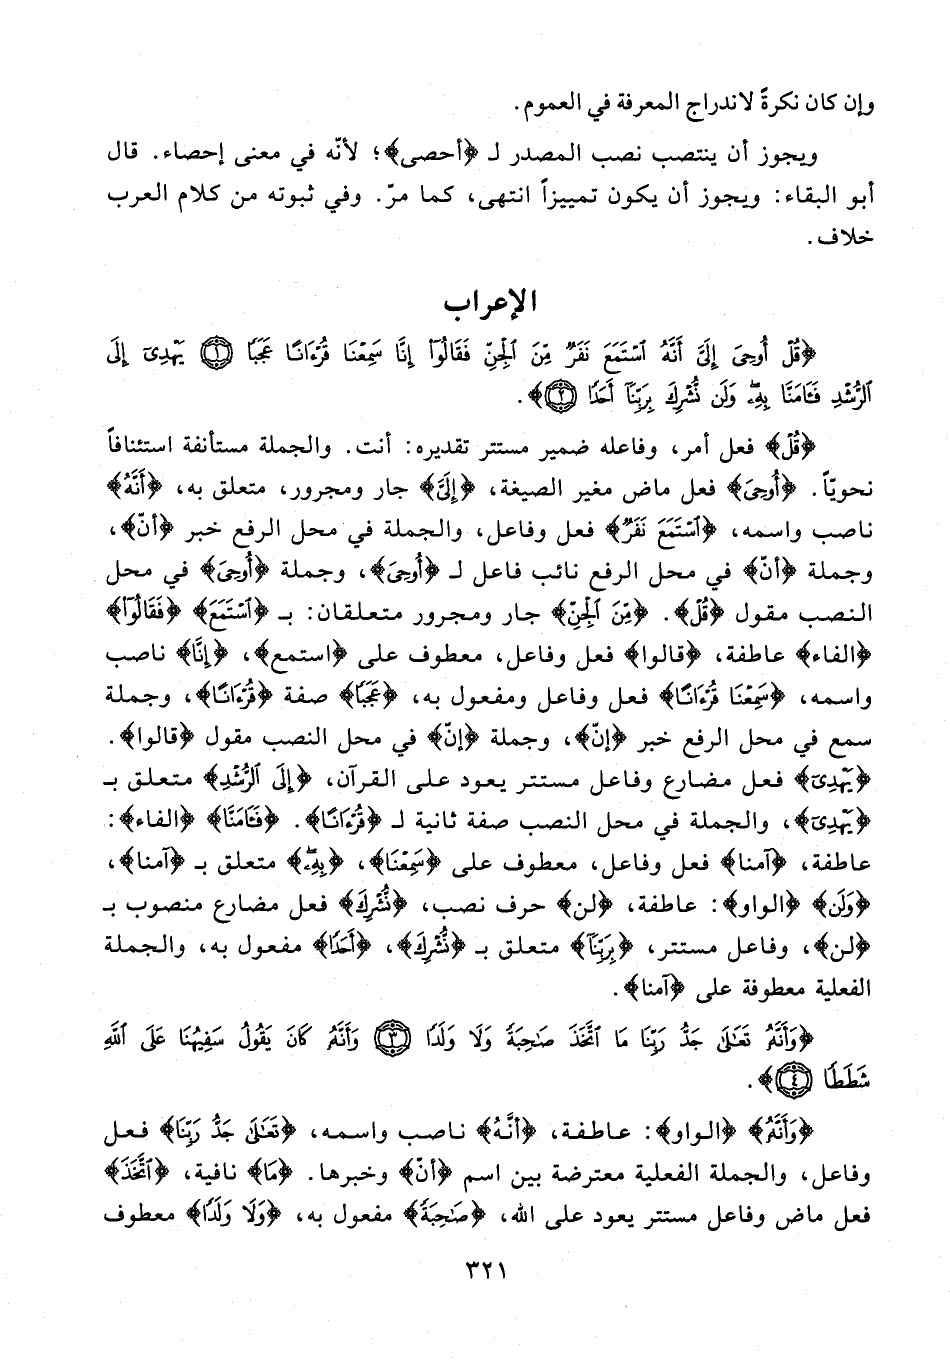 وإن كان نكرةً لاندراج المعرفة في العموم.
ويجوز أن ينتصب نصب المصدر لـ ﴿أحصى﴾؛ لأنّه في معنى إحصاء. قال
أبو البقاء: ويجوز أن يكون تمييزاً انتهى، كما مرّ. وفي ثبوته من كلام العرب
خلاف.
الإعراب
﴿قُلْ أُوحِىَ إِلَىَّ أَنَّهُ ٱسْتَمَعَ نَفَرٌ مِّنَ ٱلْجِنِّ فَقَالُوٓا۟ إِنَّا سَمِعْنَا قُرْءَانًا عَجَبًا ١ يَهْدِىٓ إِلَى
ٱلرُّشْدِ فَـَٔامَنَّا بِهِۦ وَلَن نُّشْرِكَ بِرَبِّنَآ أَحَدًا ٢﴾.
﴿قُلْ﴾ فعل أمر، وفاعله ضمير مستتر تقديره: أنت. والجملة مستأنفة استئنافاً
نحويّاً. ﴿أُوحِىَ﴾ فعل ماض مغير الصيغة، ﴿إِلَىَّ﴾ جار ومجرور، متعلق به، ﴿أَنَّهُ﴾
ناصب واسمه، ﴿ٱسْتَمَعَ نَفَرٌ﴾ فعل وفاعل، والجملة في محل الرفع خبر ﴿أنّ﴾،
وجملة ﴿أنّ﴾ في محل الرفع نائب فاعل لـ ﴿أُوحِىَ﴾، وجملة ﴿أُوحِىَ﴾ في محل
النصب مقول ﴿قُلْ﴾. ﴿مِّنَ ٱلْجِنِّ﴾ جار ومجرور متعلقان: بـ ﴿ٱسْتَمَعَ﴾ ﴿فَقَالُوٓا۟﴾
﴿الفاء﴾ عاطفة، ﴿قالوا﴾ فعل وفاعل، معطوف على ﴿استمع﴾، ﴿إِنَّا﴾ ناصب
واسمه، ﴿سَمِعْنَا قُرْءَانًا﴾ فعل وفاعل ومفعول به، ﴿عَجَبًا﴾ صفة ﴿قُرْءَانًا﴾، وجملة
سمع في محل الرفع خبر ﴿إنّ﴾، وجملة ﴿إنّ﴾ في محل النصب مقول ﴿قالوا﴾.
﴿يَهْدِىٓ﴾ فعل مضارع وفاعل مستتر يعود على القرآن، ﴿إِلَى ٱلرُّشْدِ﴾ متعلق بـ
﴿يَهْدِىٓ﴾، والجملة في محل النصب صفة ثانية لـ ﴿قُرْءَانًا﴾. ﴿فَـَٔامَنَّا﴾ ﴿الفاء﴾:
عاطفة، ﴿آمنا﴾ فعل وفاعل، معطوف على ﴿سَمِعْنَا﴾، ﴿بِهِۦ﴾ متعلق بـ ﴿آمنا﴾،
﴿وَلَن﴾ ﴿الواو﴾: عاطفة، ﴿لن﴾ حرف نصب، ﴿نُّشْرِكَ﴾ فعل مضارع منصوب بـ
﴿لن﴾، وفاعل مستتر، ﴿بِرَبِّنَآ﴾ متعلق بـ ﴿نُّشْرِكَ﴾، ﴿أَحَدًا﴾ مفعول به، والجملة
الفعلية معطوفة على ﴿آمنا﴾.
﴿وَأَنَّهُۥ تَعَٰلَىٰ جَدُّ رَبِّنَا مَا ٱتَّخَذَ صَٰحِبَةً وَلَا وَلَدًا ٣ وَأَنَّهُۥ كَانَ يَقُولُ سَفِيهُنَا عَلَى ٱللَّهِ
شَطَطًا ٤﴾.
﴿وَأَنَّهُۥ﴾ ﴿الواو﴾: عاطفة، ﴿أَنَّهُ﴾ ناصب واسمه، ﴿تَعَٰلَىٰ جَدُّ رَبِّنَا﴾ فعل
وفاعل، والجملة الفعلية معترضة بين اسم ﴿أنّ﴾ وخبرها. ﴿مَا﴾ نافية، ﴿ٱتَّخَذَ﴾
فعل ماض وفاعل مستتر يعود على الله، ﴿صَٰحِبَةً﴾ مفعول به، ﴿وَلَا وَلَدًا﴾ معطوف
٣٢١